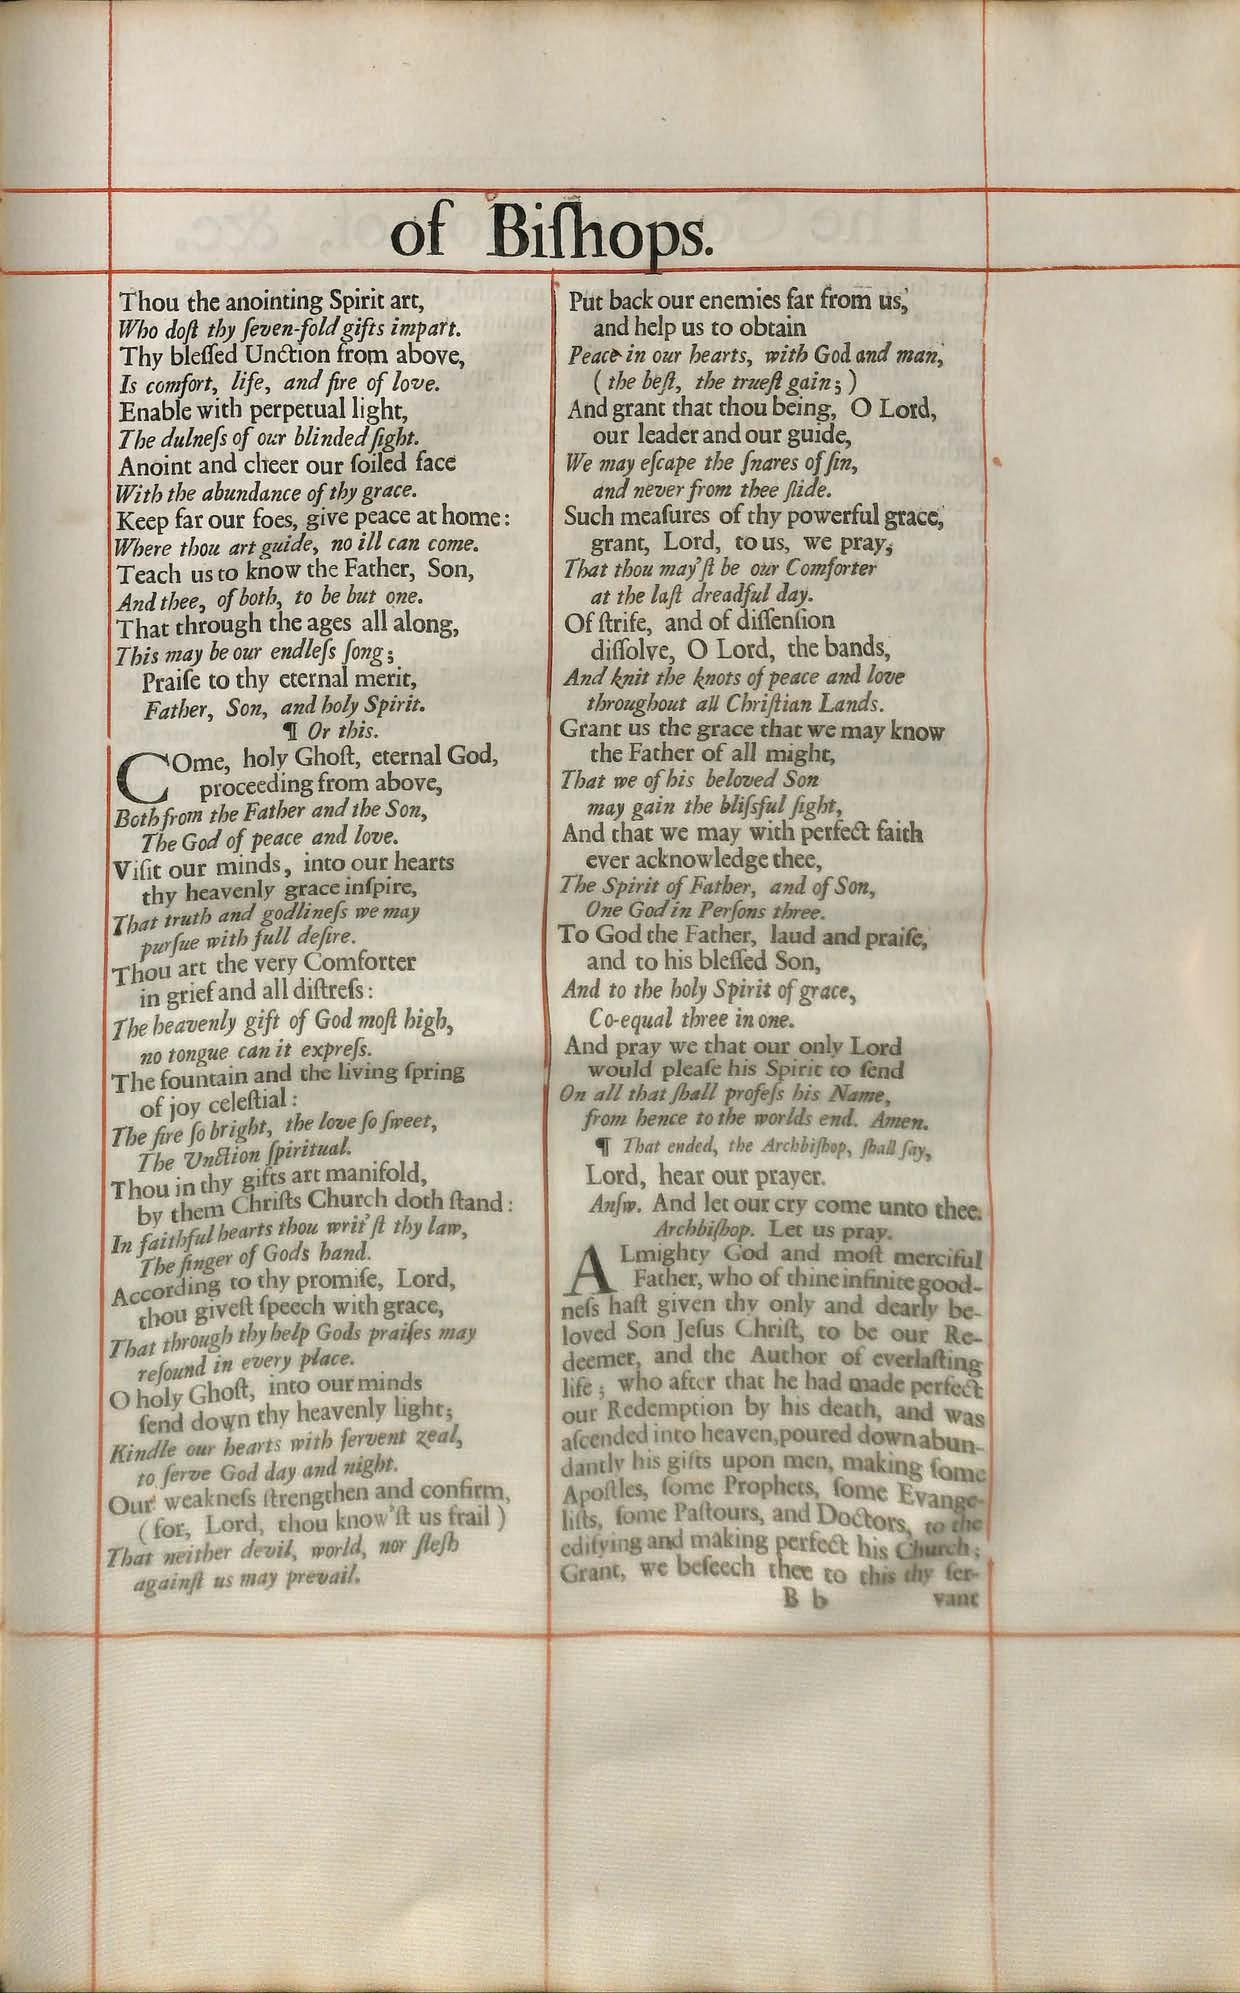 of Biſhops.
Thou the anointing Spirit art,
Who doſt thy ſeven-fold gifts impart.
Thy bleſſed Unction from above,
Is comfort, life, and fire of love.
Enable with perpetual light,
The dulneſs of our blinded ſight.
Anoint and cheer our ſoiled face
With the abundance of thy grace.
Keep far our foes, give peace at home:
Where thou art guide, no ill can come.
Teach us to know the Father, Son,
And thee, of both, to be but one.
That through the ages all along,
This may be our endleſs ſong;
Praiſe to thy eternal merit,
Father, Son, and holy Spirit.
¶ Or this.
COme, holy Ghoſt, eternal God,
proceeding from above,
Both from the Father and the Son,
The God of peace and love.
Viſit our minds, into our hearts
thy heavenly grace inſpire,
That truth and godlineſs we may
purſue with full deſire.
Thou art the very Comforter
in grief and all diſtreſs:
The heavenly gift of God moſt high,
no tongue can it expreſs.
The fountain and the living ſpring
of joy celeſtial:
The fire ſo bright, the love ſo ſweet,
The Unction ſpiritual.
Thou in thy gifts art manifold,
by them Chriſts Church doth ſtand:
In faithful hearts thou writ'ſt thy law,
The finger of Gods hand.
According to thy promiſe, Lord,
thou giveſt ſpeech with grace,
That through thy help Gods praiſes may
reſound in every place.
O holy Ghoſt, into our minds
ſend down thy heavenly light;
Kindle our hearts with fervent zeal,
to ſerve God day and night.
Our weakneſs ſtrengthen and confirm,
(for, Lord, thou know'ſt us frail)
That neither devil, world, nor fleſh
againſt us may prevail.
Put back our enemies far from us,
and help us to obtain
Peace in our hearts, with God and man,
(the beſt, the trueſt gain;)
And grant that thou being, O Lord,
our leader and our guide,
We may eſcape the ſnares of ſin,
and never from thee ſlide.
Such meaſures of thy powerful grace,
grant, Lord, to us, we pray;
That thou may'ſt be our Comforter
at the laſt dreadful day.
Of ſtrife, and of diſſenſion
diſſolve, O Lord, the bands,
And knit the knots of peace and love
throughout all Chriſtian Lands.
Grant us the grace that we may know
the Father of all might,
That we of his beloved Son
may gain the bliſsful ſight,
And that we may with perfect faith
ever acknowledge thee,
The Spirit of Father, and of Son,
One God in Perſons three.
To God the Father, laud and praiſe,
and to his bleſſed Son,
And to the holy Spirit of grace,
Co-equal three in one.
And pray we that our only Lord
would pleaſe his Spirit to ſend
On all that ſhall profeſs his Name,
from hence to the worlds end. Amen.
¶ That ended, the Archbiſhop, ſhall ſay,
Lord, hear our prayer.
Anſw. And let our cry come unto thee.
Archbiſhop. Let us pray.
ALmighty God and moſt merciful
Father, who of thine infinite good-
neſs haſt given thy only and dearly be-
loved Son Jeſus Chriſt, to be our Re-
deemer, and the Author of everlaſting
life; who after that he had made perfect
our Redemption by his death, and was
aſcended into heaven, poured down abun-
dantly his gifts upon men, making ſome
Apoſtles, ſome Prophets, ſome Evange-
liſts, ſome Paſtours, and Doctors, to the
edifying and making perfect his Church;
Grant, we beſeech thee to this thy ſer-
B b vant